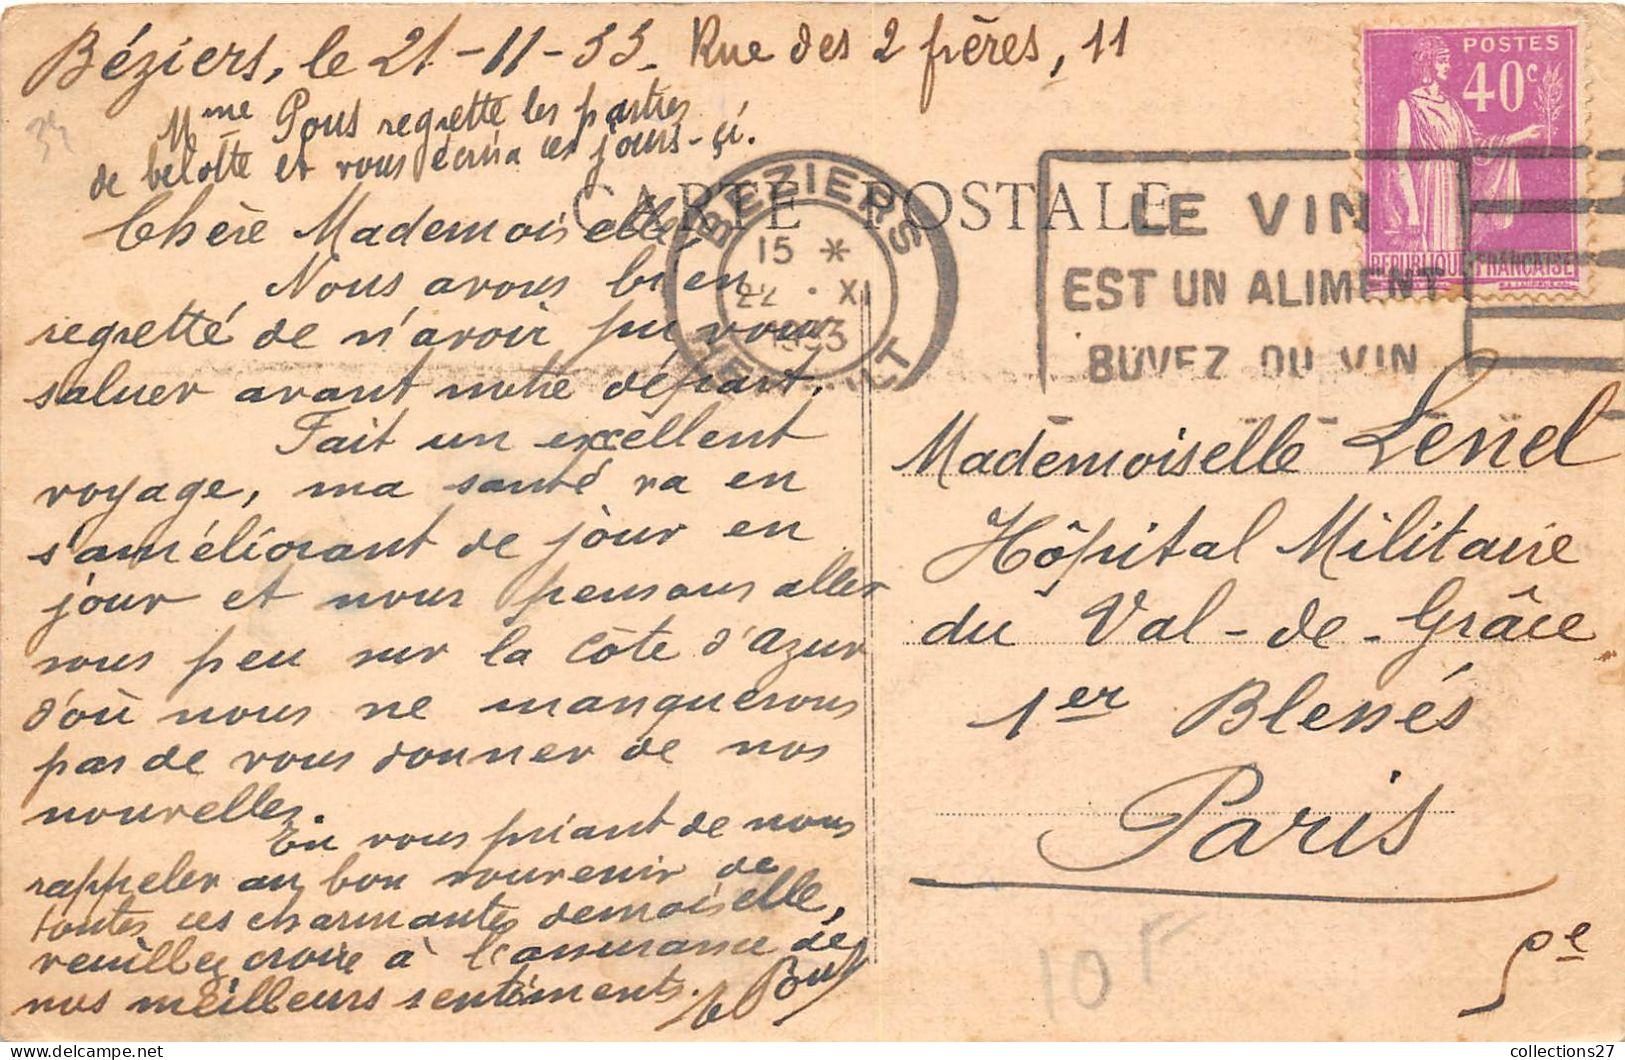 Béziers, le 21-11-33. Rue des 2 frères, 11
Mme Pous regrette les parties
de belotte et vous écrira ces jours-çi.
CARTE POSTALE
Chère Mademoiselle,
Nous avons bien
regretté de n'avoir pu vous
saluer avant notre départ.
Fait un excellent
voyage, ma santé va en
s'améliorant de jour en
jour et nous pensons aller
sous peu sur la Côte d'Azur
d'où nous ne manquerons
pas de vous donner de nos
nouvelles.
En vous priant de nous
rappeler au bon souvenir de
toutes ces charmantes demoiselle,
veuillez croire à l'assurance de
nos meilleurs sentiments.
Pous
BEZIERS
15 *
22 · XI
1933
HERAULT
LE VIN
EST UN ALIMENT
BUVEZ DU VIN
POSTES
40c
REPUBLIQUE FRANÇAISE
Mademoiselle Lenel
Hôpital Militaire
du Val-de-Grâce
1er Blessés
Paris
5e
10F
34
collections27